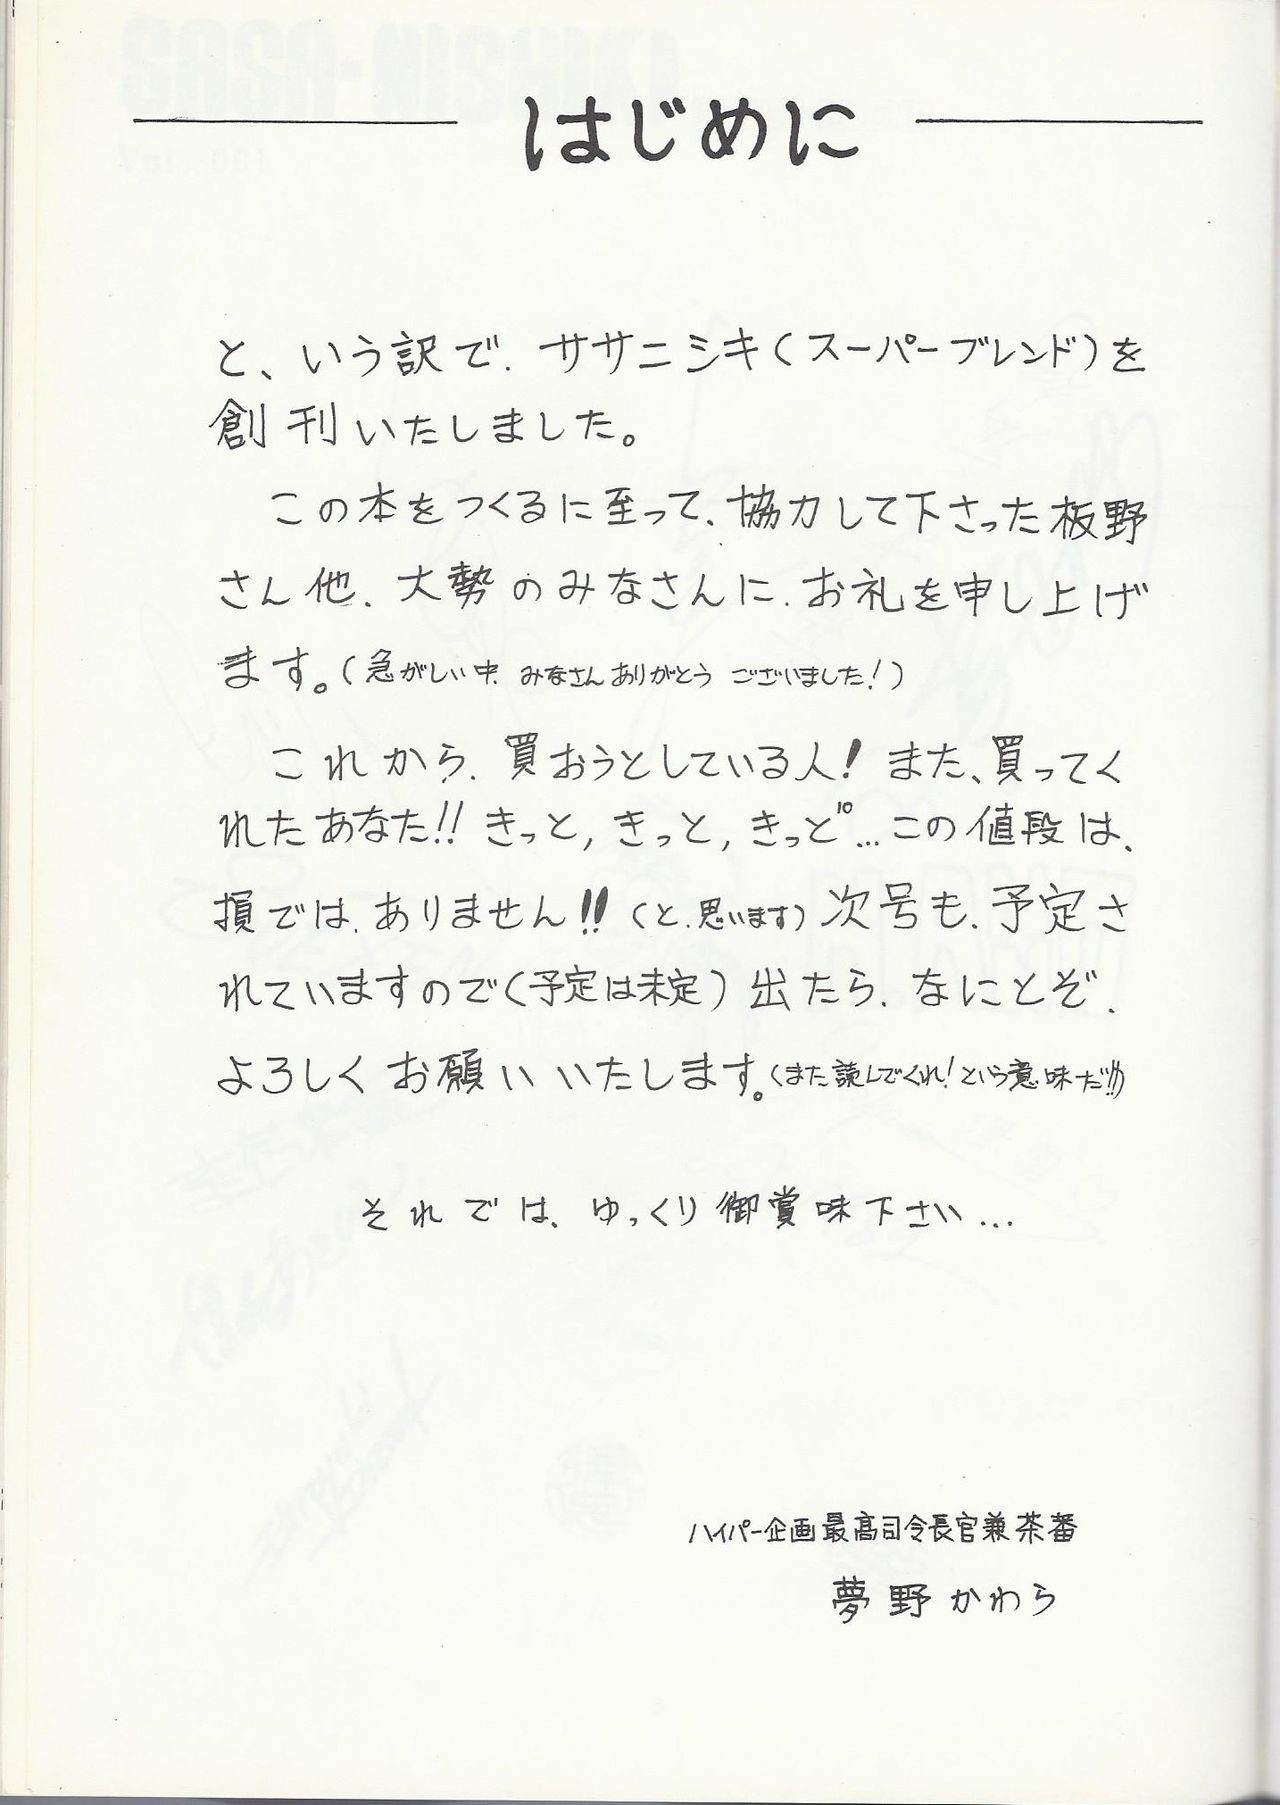 はじめに
と、いう訳で、ササニシキ(スーパーブレンド)を
創刊いたしました。
この本をつくるに至って、協力して下さった板野
さん他、大勢のみなさんに、お礼を申し上げ
ます。(急がしい中、みなさんありがとうございました!)
これから、買おうとしている人!また、買ってく
れたあなた!!きっと,きっと,きっと…この値段は、
損では、ありません!!(と、思います)次号も、予定さ
れていますので(予定は未定)出たら、なにとぞ、
よろしくお願いいたします。(また読んでくれ!という意味だ!!)
それでは、ゆっくり御賞味下さい…
ハイパー企画最高司令長官兼茶番
夢野かわら